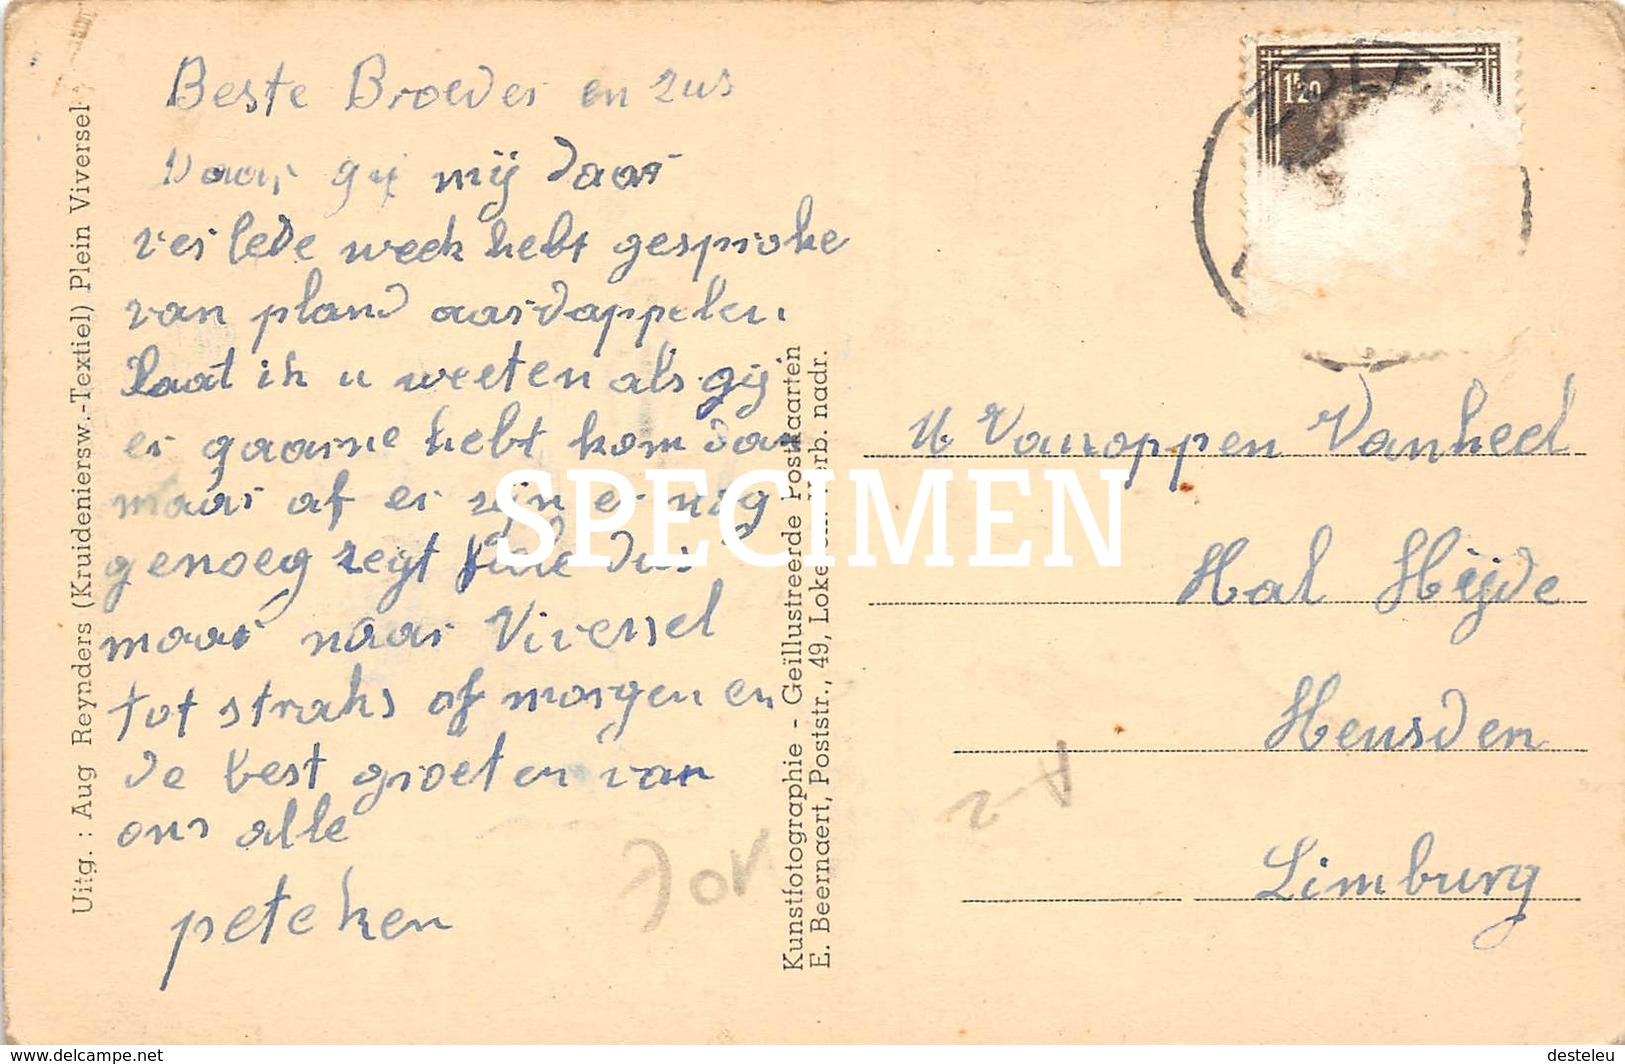 Uitg. : Aug Reynders (Kruideniersw.-Textiel) Plein Viversel
Beste Broeder en zus
Daar gij mij daar
verlede week hebt gesproke
van pland aardappelen.
laat ik u weeten als gij
er gaarne hebt kom dan
maar af er zijn er nog
genoeg zegt dus
maar naar Viversel
tot straks of morgen en
de best groeten van
ons alle
peteken
Kunstfotographie - Geïllustreerde Postkaarten
E. Beernaert, Poststr., 49, Lokeren. Verb. nadr.
1F20
ZOLD
SPECIMEN
Vanroppen Vanheel
Hal Heijde
Heusden
Limburg
JOR
2-A
https://www.delcampe.net
desteleu